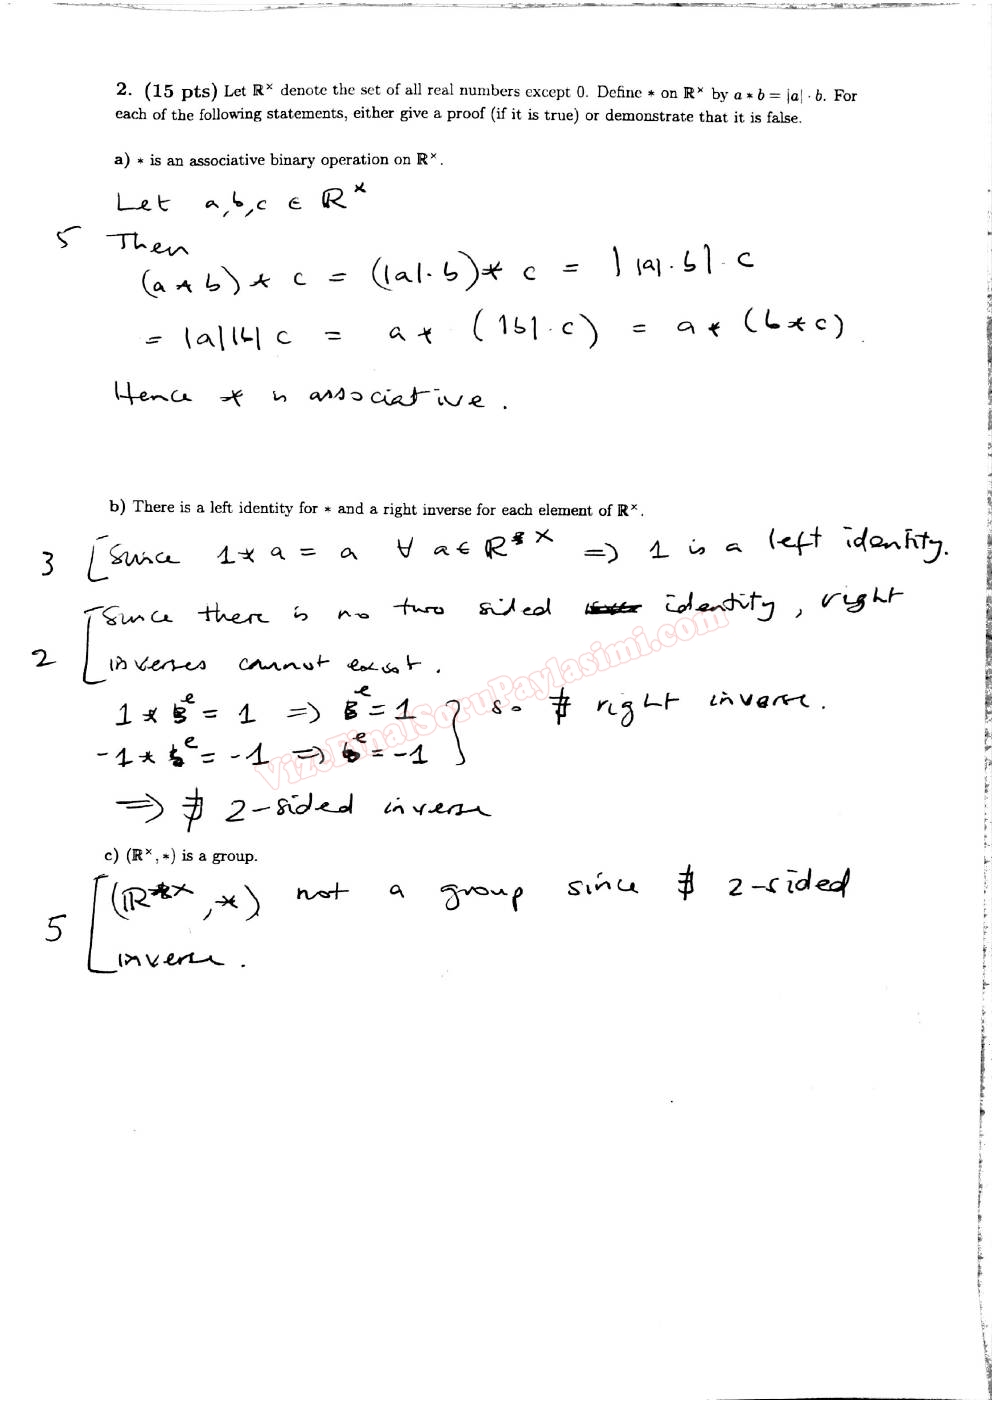 2. (15 pts) Let ℝ× denote the set of all real numbers except 0. Define * on ℝ× by a * b = |a| · b. For
each of the following statements, either give a proof (if it is true) or demonstrate that it is false.
a) * is an associative binary operation on ℝ×.
Let a,b,c ∈ ℝ×
5 Then
(a * b) * c = (|a|·b) * c = | |a|·b| · c
= |a||b| c = a * (|b|·c) = a * (b * c)
Hence * is associative.
b) There is a left identity for * and a right inverse for each element of ℝ×.
3 [Since 1 * a = a ∀ a ∈ ℝ× ⟹ 1 is a left identity.
[Since there is no two sided identity, right
2 inverses cannot exist.
1 * e = 1 ⟹ e = 1 } so ∄ right inverse.
-1 * e = -1 ⟹ e = -1
⟹ ∄ 2-sided inverse
c) (ℝ×, *) is a group.
[(ℝ×, *) not a group since ∄ 2-sided
5 inverse.
VizeFinalSoruPaylasimi.com